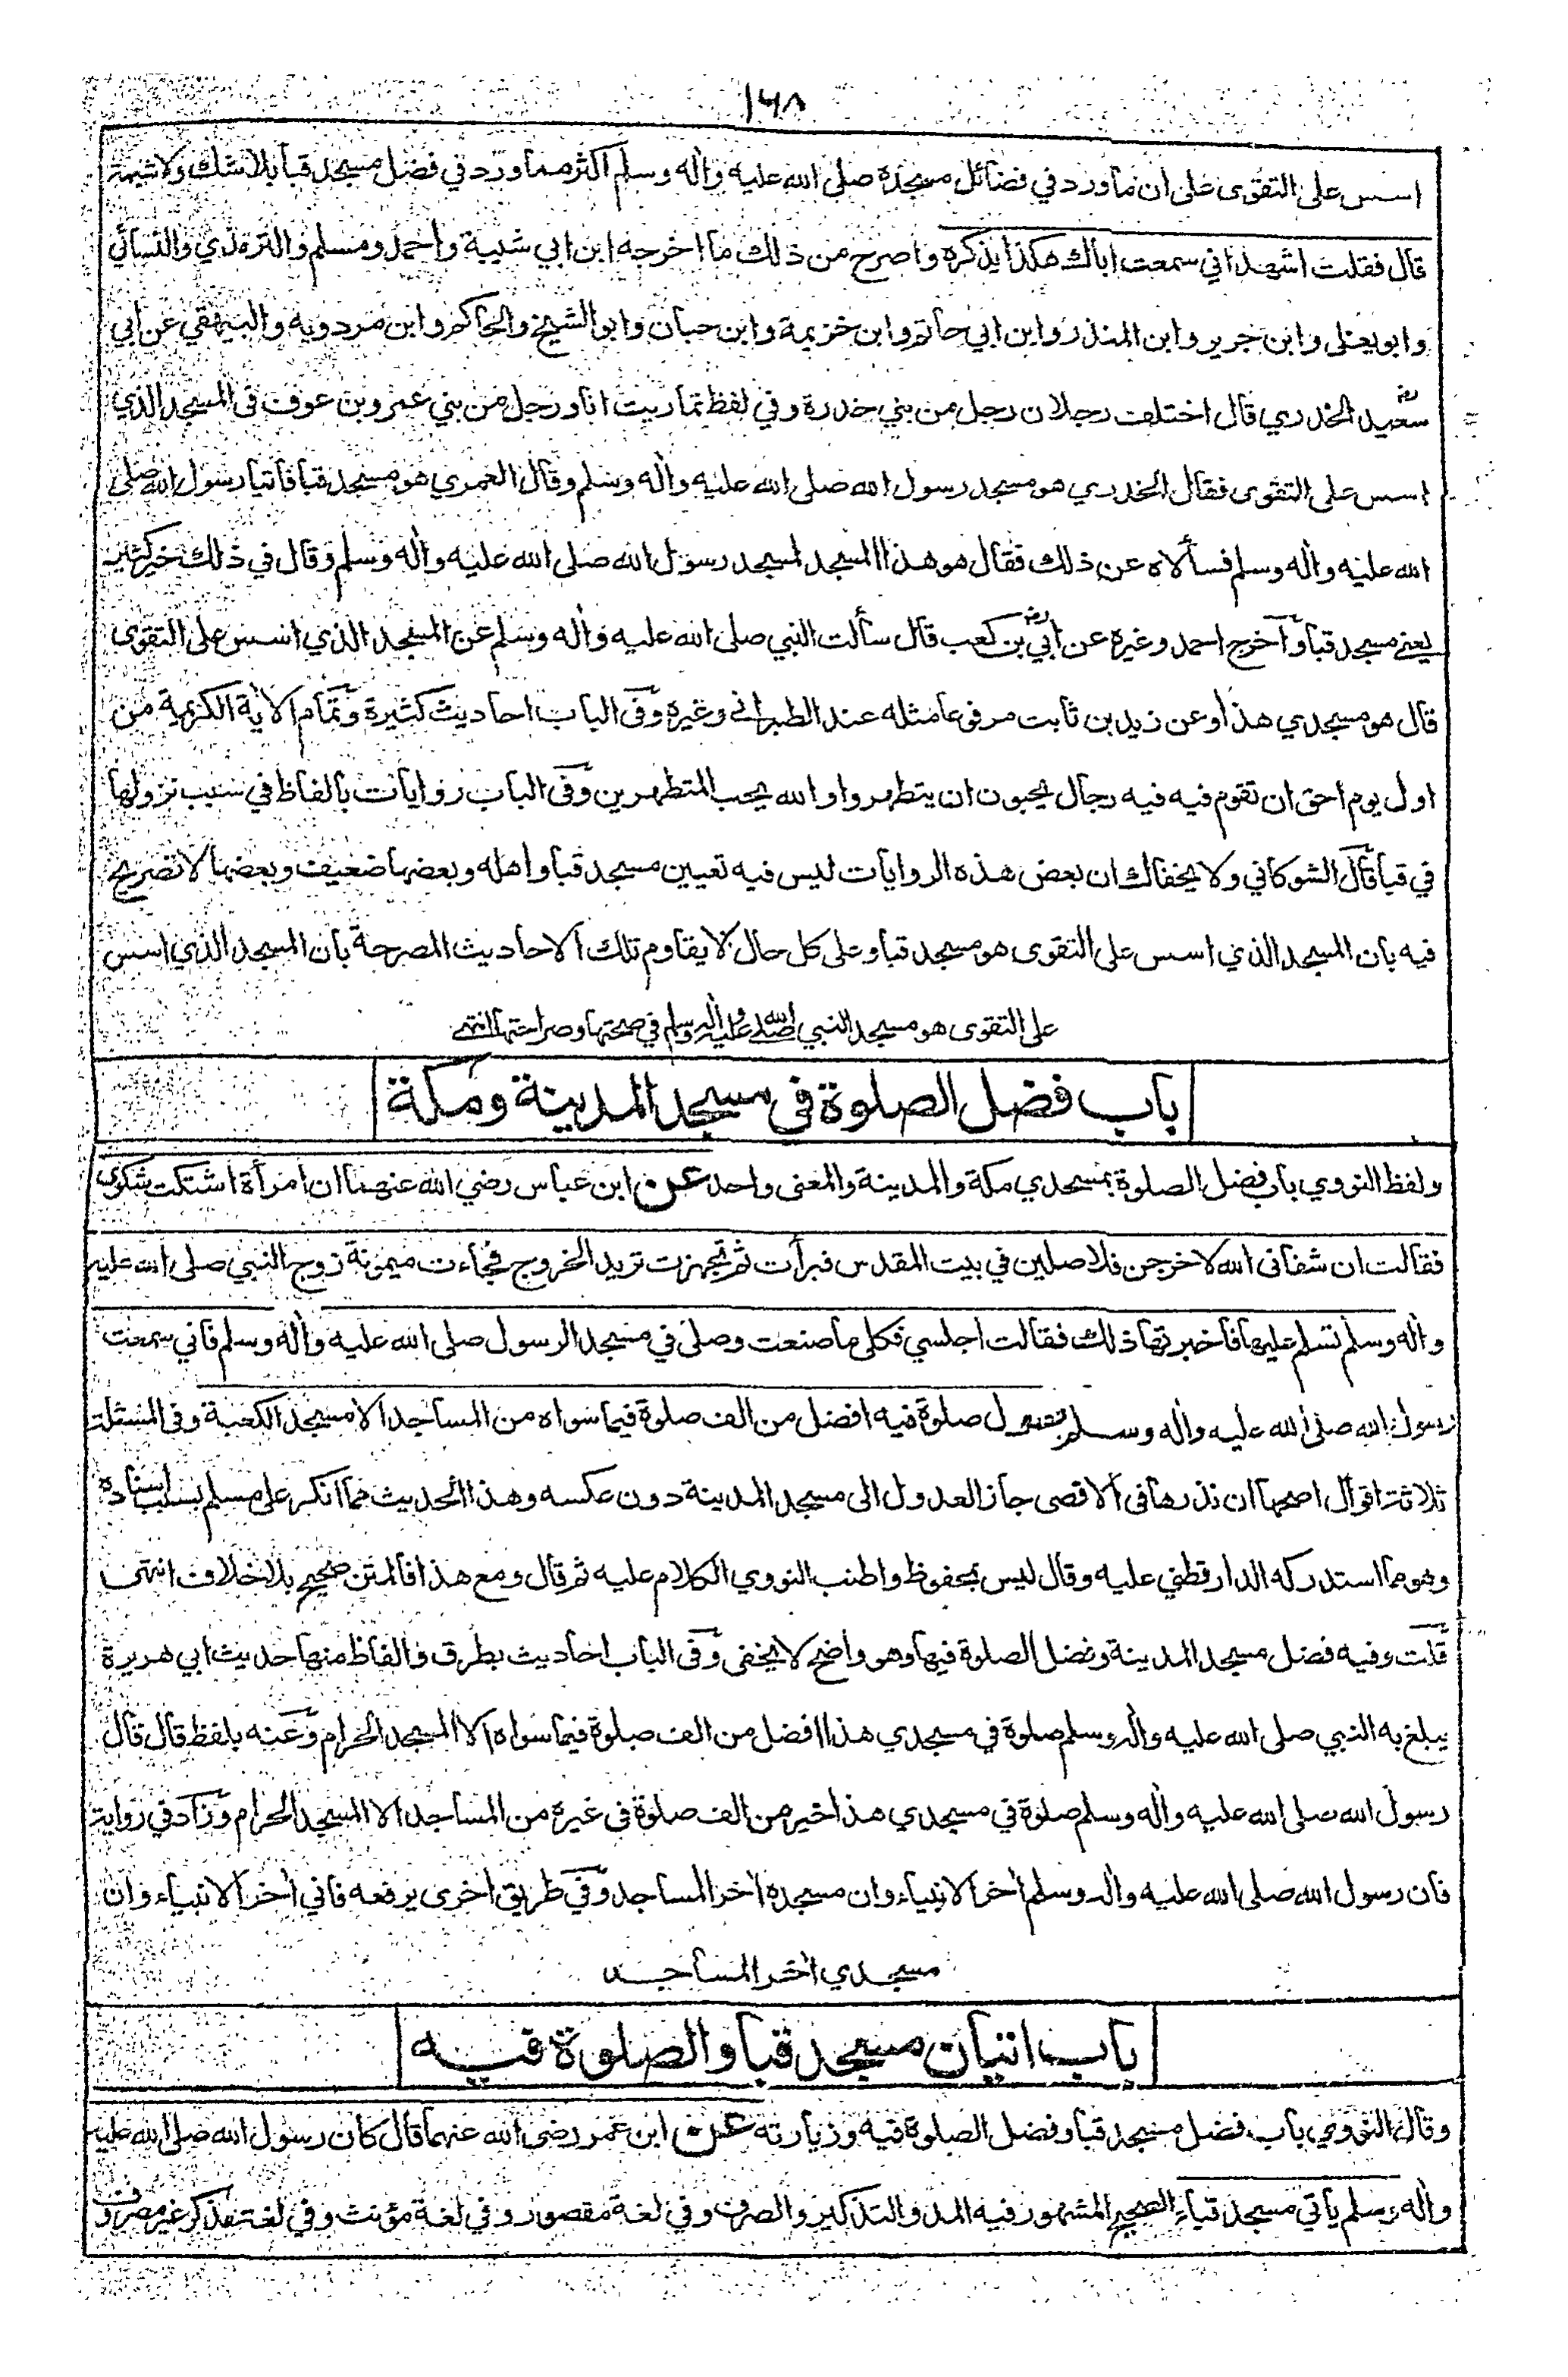 ١٦٨
اسس على التقوى على ان ما ورد في فضائل مسجده صلى الله عليه واٰله وسلم اكثر مما ورد في فضل مسجد قبا بلا شك ولا شبهة
قال فقلت اشهد اني سمعت اباك هكذا يذكره واصرح من ذلك ما اخرجه ابن ابي شيبة واحمد ومسلم والترمذي والنسائي
وابو يعلى وابن جرير وابن المنذر وابن ابي حاتم وابن خزيمة وابن حبان وابو الشيخ والحاكم وابن مردويه والبيهقي عن ابي
سعيد الخدري قال اختلف رجلان رجل من بني خدرة وفي لفظ تماريت انا ورجل من بني عمرو بن عوف في المسجد الذي
اسس على التقوى فقال الخدري هو مسجد رسول الله صلى الله عليه واٰله وسلم وقال العمري هو مسجد قبا فاتيا رسول الله صلى
الله عليه واٰله وسلم فسألاه عن ذلك فقال هو هذا المسجد لمسجد رسول الله صلى الله عليه واٰله وسلم وقال في ذلك خير كثير
يعني مسجد قبا واخرج احمد وغيره عن ابي بن كعب قال سألت النبي صلى الله عليه واٰله وسلم عن المسجد الذي اسس على التقوى
قال هو مسجدي هذا وعن زيد بن ثابت مرفوعا مثله عند الطبراني وغيره وفي الباب احاديث كثيرة وتمام الاٰية الكريمة من
اول يوم احق ان تقوم فيه فيه رجال يحبون ان يتطهروا والله يحب المتطهرين وفي الباب روايات بالفاظ في سبب نزولها
في قبا قال الشوكاني ولا يخفاك ان بعض هذه الروايات ليس فيه تعيين مسجد قبا واهله وبعضها ضعيف وبعضها لا تصريح
فيه بان المسجد الذي اسس على التقوى هو مسجد قبا وعلى كل حال لا يقاوم تلك الاحاديث المصرحة بان المسجد الذي اسس
على التقوى هو مسجد النبي صلى الله عليه واٰله وسلم في صحتها وصراحتها انتهى
باب فضل الصلوة في مسجد المدينة ومكة
ولفظ النووي باب فضل الصلوة بمسجدي مكة والمدينة والمعنى واحد عن ابن عباس رضي الله عنهما ان امرأة اشتكت شكوى
فقالت ان شفاني الله لاخرجن فلاصلين في بيت المقدس فبرأت ثم تجهزت تريد الخروج فجاءت ميمونة زوج النبي صلى الله عليه
واٰله وسلم تسلم عليها فاخبرتها ذلك فقالت اجلسي فكلي ما صنعت وصلى في مسجد الرسول صلى الله عليه واٰله وسلم فاني سمعت
رسول الله صلى الله عليه واٰله وسلم يقول صلوة فيه افضل من الف صلوة فيما سواه من المساجد الا مسجد الكعبة وفي المسئلة
ثلاثة اقوال اصحها ان نذرها في الاقصى جاز العدول الى مسجد المدينة دون عكسه وهذا الحديث مما انكر على مسلم بسبب اسناده
وهو مما استدركه الدارقطني عليه وقال ليس بمحفوظ واطنب النووي الكلام عليه ثم قال ومع هذا فالمتن صحيح بلا خلاف انتهى
قلت وفيه فضل مسجد المدينة وفضل الصلوة فيها وهو واضح لا يخفى وفي الباب احاديث بطرق والفاظ منها حديث ابي هريرة
يبلغ به النبي صلى الله عليه واٰله وسلم صلوة في مسجدي هذا افضل من الف صلوة فيما سواه الا المسجد الحرام وعنه بلفظ قال قال
رسول الله صلى الله عليه واٰله وسلم صلوة في مسجدي هذا خير من الف صلوة في غيره من المساجد الا المسجد الحرام وزاد في رواية
فان رسول الله صلى الله عليه واٰله وسلم اٰخر الانبياء وان مسجده اٰخر المساجد وفي طريق اخرى يرفعه فاني اٰخر الانبياء وان
مسجدي اٰخر المساجد
باب اتيان مسجد قبا والصلوة فيه
وقال النووي باب فضل مسجد قبا وفضل الصلوة فيه وزيارته عن ابن عمر رضي الله عنهما قال كان رسول الله صلى الله عليه
واٰله وسلم يأتي مسجد قباء الصحيح المشهور فيه المد والتذكير والصرف وفي لغة مقصور وفي لغة مؤنث وفي لغة مذكر غير مصروف